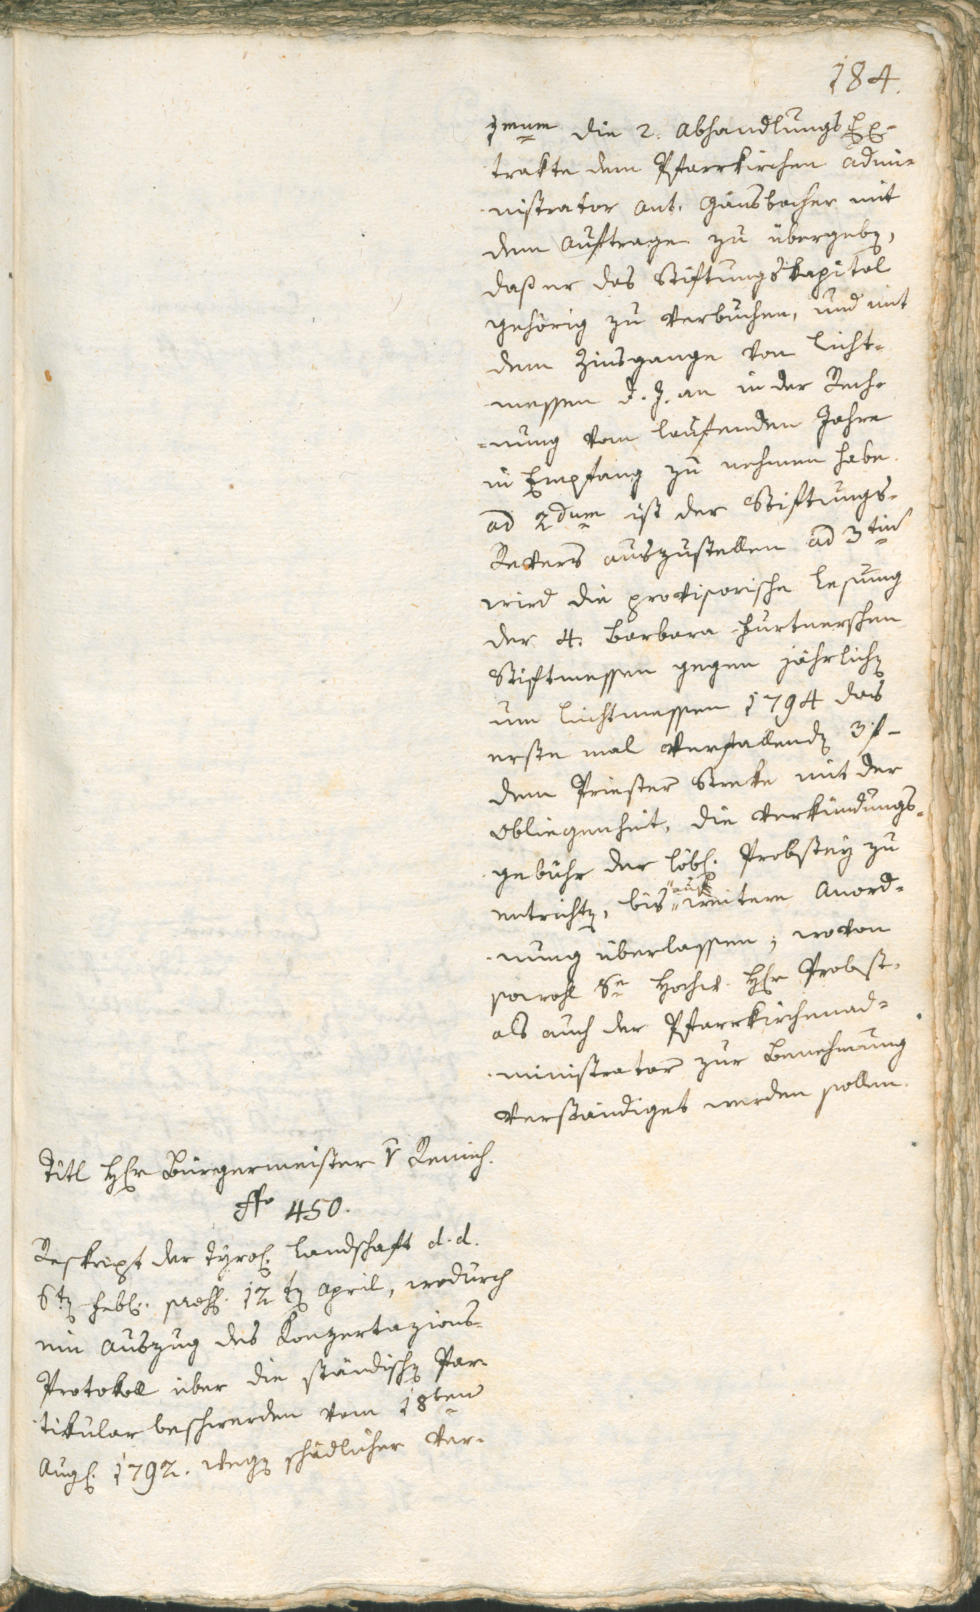 184.
1mum die 2. AbhandlungsEx=
trakte dem Pfarrkirchen Admi=
nistrator Ant. Gänsbacher mit
dem Auftrage zu übergeben,
daß er das Stiftungskapital
gehörig zu verbuchen, und mit
dem Zinsgange von Licht=
messen d. J. an in der Rech=
=nung vom laufenden Jahre
in Empfang zu nehmen habe.
ad 2dum ist der Stiftungs=
Revers auszustellen ad 3tium
wird die provisorische Lesung
der 4. Barbara Hurtnerschen
Stiftmessen gegen jährlich
um Lichtmessen 1794 das
erste mal verfallend 3 f –
dem Priester Streke mit der
Obliegenheit, die Verkündungs=
gebühr der löbl. Probstey zu
entrichten, bis auf weitere Anord=
nung überlassen; wovon
sowohl Se Hochw. Hr Probst,
als auch der Pfarrkirchenad=
ministrator zur Benehmung
verständiget werden sollen.
Titl Hr Bürgermeister v Remich.
No 450.
Reskript der tyrol. Landschaft d. d.
6ten Hebl. praes. 12ten April, wodurch
ein Auszug des Konzertazions=
Protokoll über die ständischen Par=
tikularbeschwerden vom 18ten
Aug. 1792. wegen schädlicher Ver=